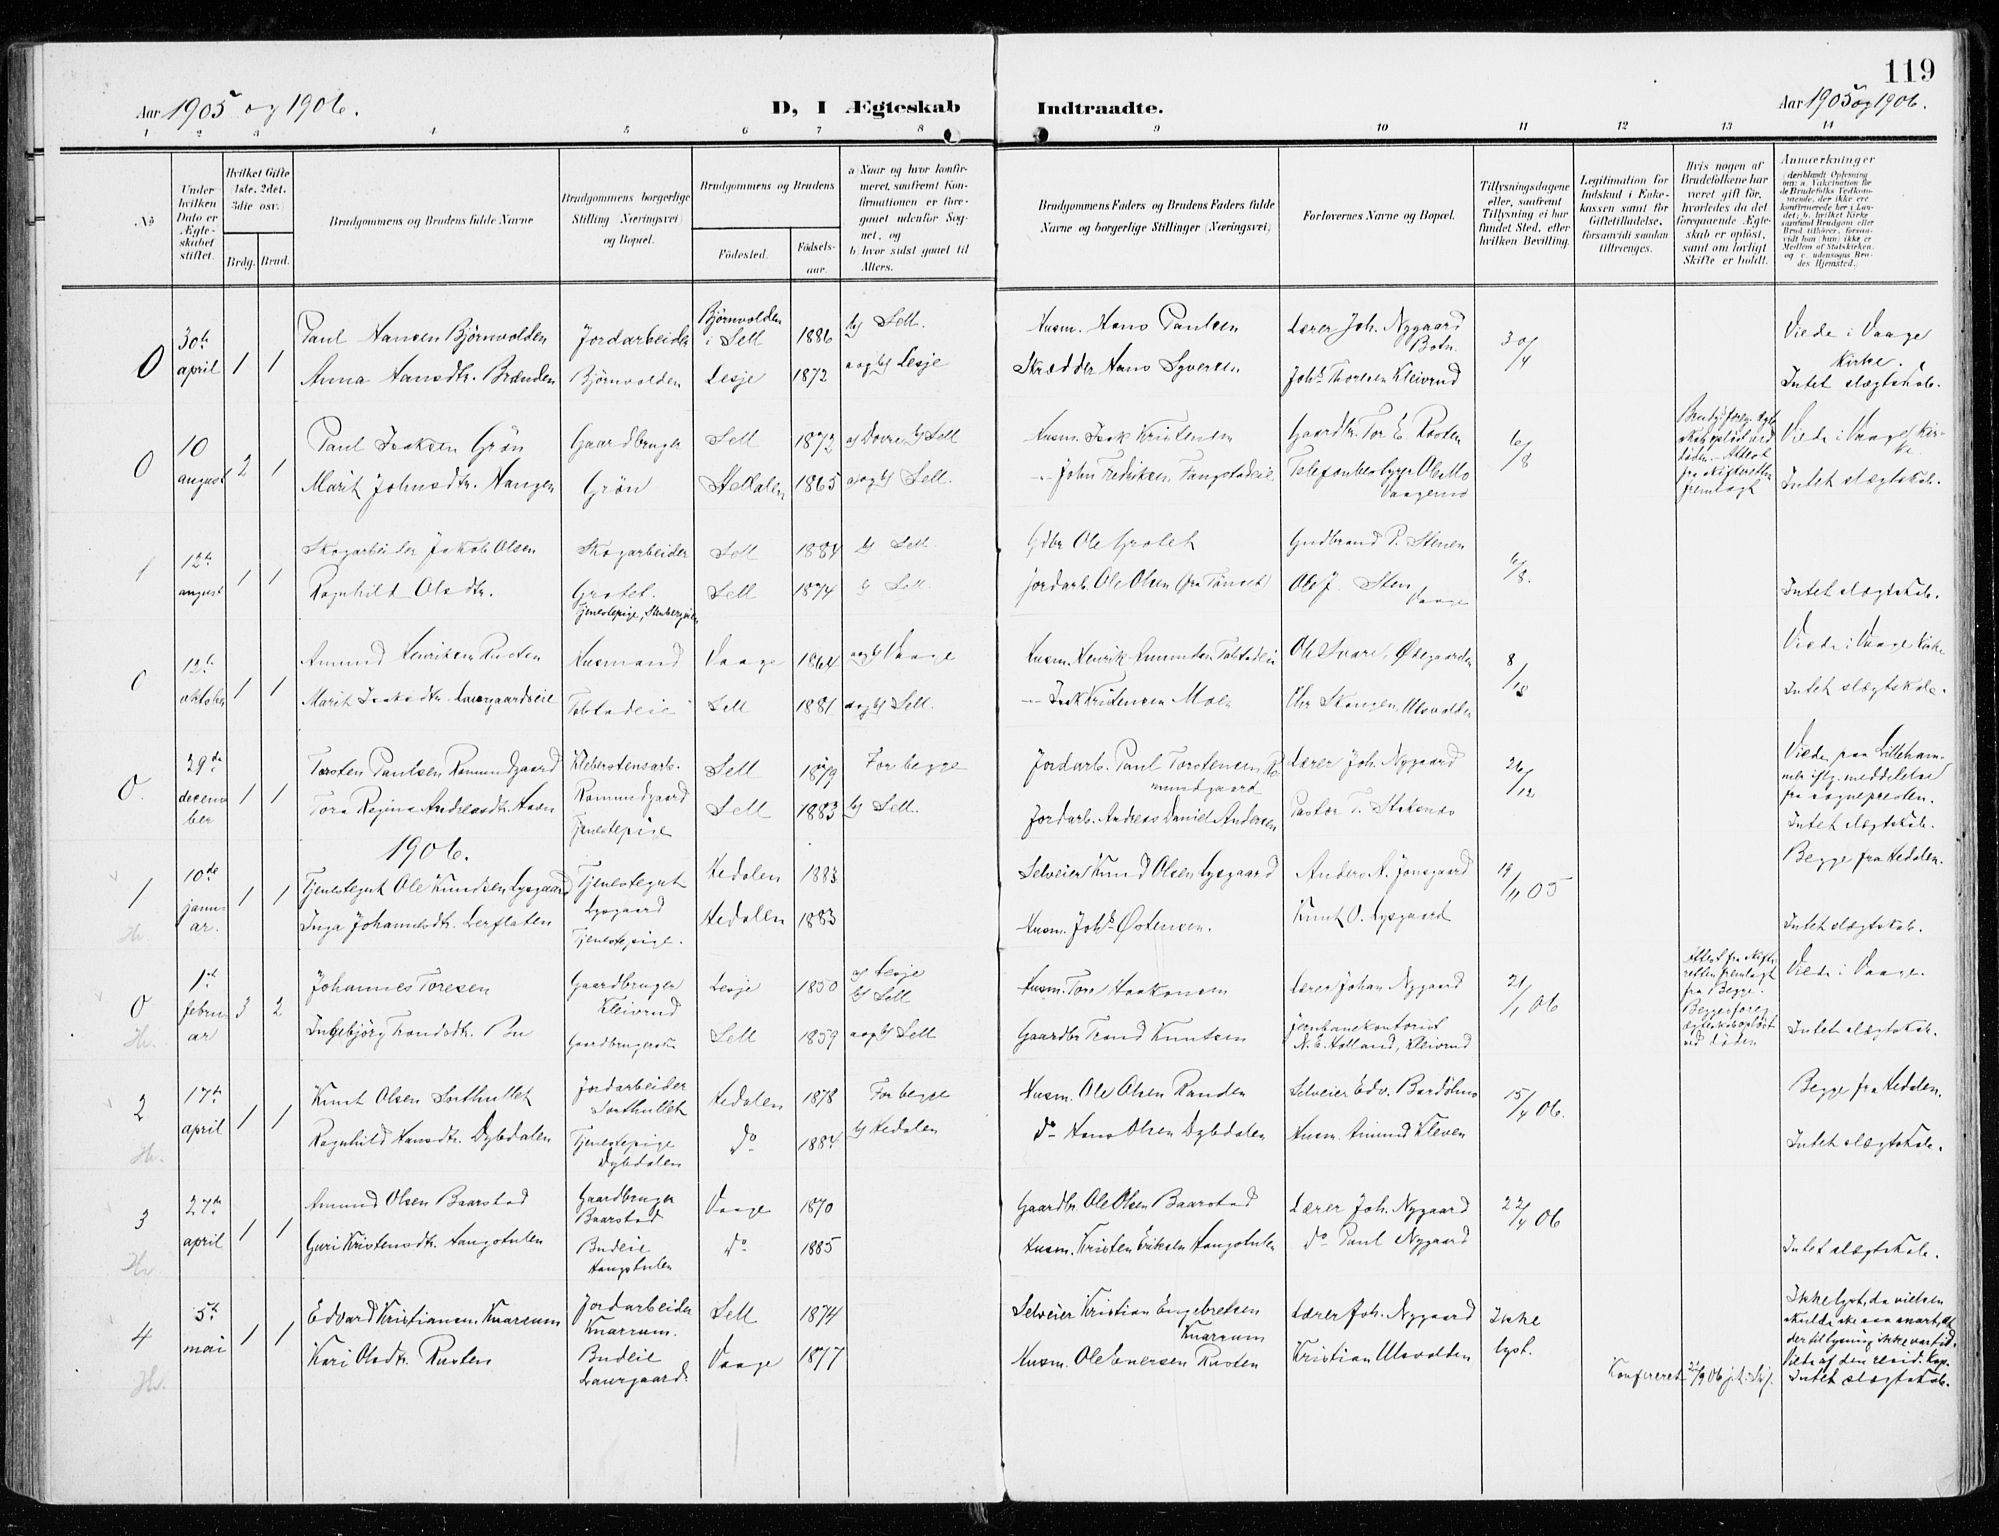 119
Aar 1905 og 1906. D, I Ægteskab Indtraadte. Aar 1905 og 1906.
1 2 3 4 5 6 7 8 9 10 11 12 13 14
No
Under hvilken Dato er Ægteskabet stiftet.
Hvilket Gifte 1ste, 2det, 3die osv.)
Brdg. Brud.
Brudgommens og Brudens fulde Navne
Brudgommens borgerlige Stilling (Næringsvei) og Bopæl.
Brudgommens og Brudens
Födested. Födselsaar.
a) Naar og hvor konfirmeret, saafremt Konfirmationen er foregaaet udenfor Sognet, og
b) hvor sidst gaaet til Alters.
Brudgommens Faders og Brudens Faders fulde Navne og borgerlige Stillinger (Næringsvei)
Forlovernes Navne og Bopæl.
Tillysningsdagene eller, saafremt Tillysning ei har fundet Sted, efter hvilken Bevilling.
Legitimation for Indskud i Enkekassen samt for Giftetilladelse, forsaavidt saadan tiltrænges.
Hvis nogen af Brudefolkene har været gift før, hvorledes da det foregaaende Ægteskab er oplöst, samt om lovligt Skifte er holdt.
Anmærkninger
0 30te april 1 1
Paul Hansen Bjørnvolden Jordarbeider Bjørnvolden i Sell 1886 b) Sell. Husm. Hans Paulsen Lærer Joh. Nygaard Botn. 30/4 Viede i Vaage Kirke.
Anna Hansdtr. Brænden Bjørnvolden Lesje 1872 a og b) Lesje Skrædder Hans Syversen Johs Thoresen Kleivrud Intet slægtskab.
0 10 august 2 1
Paul Isaksen Grøn Gaardbruger Sell 1872 a) Dovre b) Sell Husm. Isak Kristensen Gaardbr. Tor E. Rusten 6/8 Viede i Vaage Kirke.
Marit Johnsdtr. Hangen Grøn Selldalen 1865 a og b) Sell. John Fredriksen Ole Mo Vaagemo fra skifteretten fremlagt Intet slægtskab.
1 12te august 1 1
Skogarbeider Jakob Olsen Skogarbeider Sell 1884 b) Sell Gdbr Ole Grotet Gudbrand P. Stenen 6/8.
Ragnhild Olsdtr. Grotet. Tjenestepige, Sell 1874 b) Sell. Jordarb. Ole Olsen (fra Tønset) Ole J. Sten Vaage Intet slægtskab.
0 12te oktober 1 1
Amund Henriksen Rusten Husmand Vaage 1864 a og b) Vaage Husm. Henrik Amundsen Tolstadeie Ole Svare, Ødegaarden 8/10 Viede i Vaage Kirke
Marit Isaksdtr. Laurgaardseie Tolstadeie Sell 1881 a og b) Sell. Isak Kristensen Moen Ulsvolden Intet slægtskab.
0. 29de december 1 1
Torsten Paulsen Romundgaard Kleberstensarb. Sell 1879 For begge Jordarb. Paul Torstensen Romundgaard Lærer Joh. Nygaard 26/12 Viede paa Lillehammer iflg. meddelelse fra sognepresten.
Tora Regine Andreasdtr. Romundgaard Tjenestepige Sell 1883 b) Sell. Jordarb. Andreas Daniel Andersen Pastor T. Intet slægtskab.
1906.
1 Hr. 10de januar. 1 1
Tjenestegut Ole Knudsen Lysgaard Tjenestegut Lysgaard Hedalen 1883 Selveier Knud Olsen Lysgaard Anders A. Jonsgaard 19/11 05 Begge fra Hedalen.
Inga Johannesdtr. Lerflaten Tjenestepige. Hedalen 1883 Husm. Johs Østensen. Knut O. Lysgaard Intet slægtskab.
0 Hr. 1ste februar 3 2
Johannes Toresen Gaardbruger Kleivrud Lesje 1850 a) Lesje b) Sell Husm. Tore Haakonsen Lærer Johan Nygaard 21/1 06 Attest fra skifteretten fremlagt fra Begge. Viede i Vaage.
Ingebjörg Trondsdtr. Bu Sell 1859 a og b) Sell Gaardbr Trond Knutsen Jernbanekontorist N. E. Holland, Kleivrud Begges foreg. ægteskab opløst ved døden Intet slægtskab.
2 Hr. 17te april 1 1
Knut Olsen Sorthullet Jordarbeider Sorthullet Hedalen 1878 For begge Husm. Ole Olsen Randen Selveier Edv. Bardølmo 15/4 06. Begge fra Hedalen.
Ragnhild Hansdtr. Dybdalen Tjenestepige Dybdalen do 1884 b) Hedalen do Hans Olsen Dybdalen Husm. Amund Kleven Intet slægtskab.
3 Hr. 27te april 1 1
Amund Olsen Baarstad Gaardbruger Baarstad Vaage 1870 Gaardbr. Ole Olsen Baarstad Lærer Joh. Nygaard 22/4 06
Guri Kristensdtr. Haugstulen Budeie Haugstulen do 1885 Husm. Kristen Eriksen Haugstulen do Paul Nygaard Intet slægtskab.
4 Hr. 5te mai 1 1
Edvard Kristiansen Knarrum Jordarbeider Knarrum. Sell 1874 Selveier Kristian Engebretsen Knarrum Lærer Joh. Nygaard Ikke lyst. Ikke lyst, da vielsen skulde ske saa snart, at der til lysning ikke var tid. Viede af den resid. Kap.
Kari Olsdtr. Rusten Budeie Laurgaard. Vaage 1877 Husm. Ole Enersen Rusten Kristian Ulsvolden Intet slægtskab.
Konfereret 22/9 06